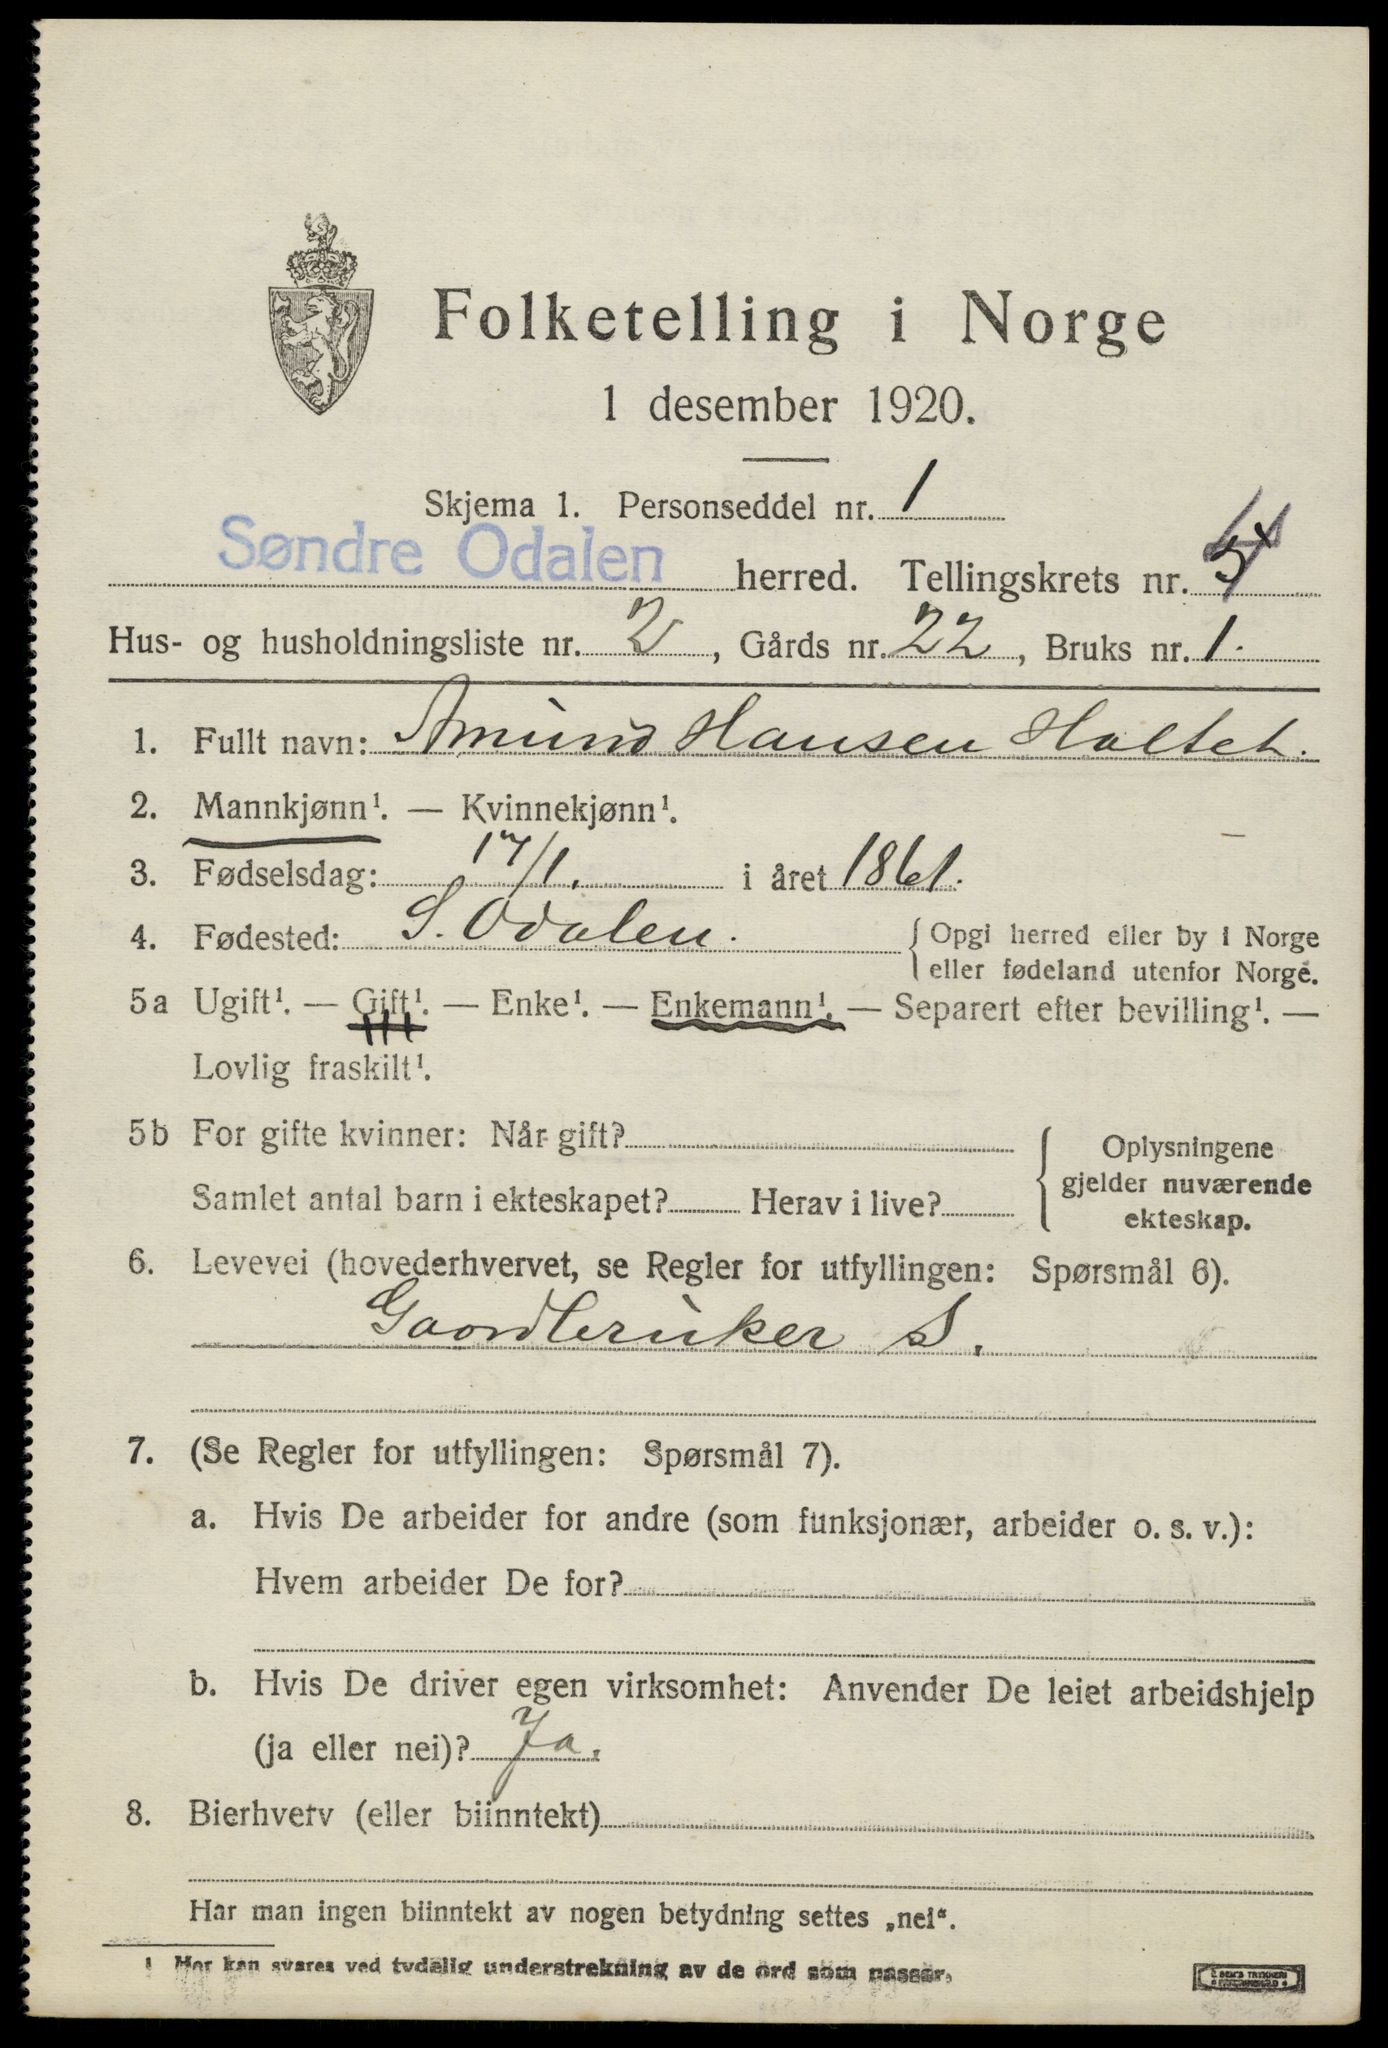 Folketelling i Norge
1 desember 1920.
Skjema 1. Personseddel nr. 1
Søndre Odalen herred. Tellingskrets nr.
Hus- og husholdningsliste nr. 2, Gårds nr. 22, Bruks nr. 1.
1. Fullt navn: Amund Hansen Holtet.
2. Mannkjønn¹. — Kvinnekjønn¹.
3. Fødselsdag: 17/1. i året 1861.
4. Fødested: S. Odalen. { Opgi herred eller by i Norge
eller fødeland utenfor Norge.
5a Ugift¹. — Gift¹. — Enke¹. — Enkemann¹. — Separert efter bevilling¹. —
Lovlig fraskilt¹.
5b For gifte kvinner: Når gift?
Samlet antal barn i ekteskapet? Herav i live?
{ Oplysningene
gjelder nuværende
ekteskap.
6. Levevei (hovederhvervet, se Regler for utfyllingen: Spørsmål 6).
Gaardbruker S.
7. (Se Regler for utfyllingen: Spørsmål 7).
a. Hvis De arbeider for andre (som funksjonær, arbeider o. s. v.):
Hvem arbeider De for?
b. Hvis De driver egen virksomhet: Anvender De leiet arbeidshjelp
(ja eller nei)? Ja.
8. Bierhverv (eller biinntekt)
Har man ingen biinntekt av nogen betydning settes „nei“.
¹ Her kan svares ved tydelig understrekning av de ord som passer.